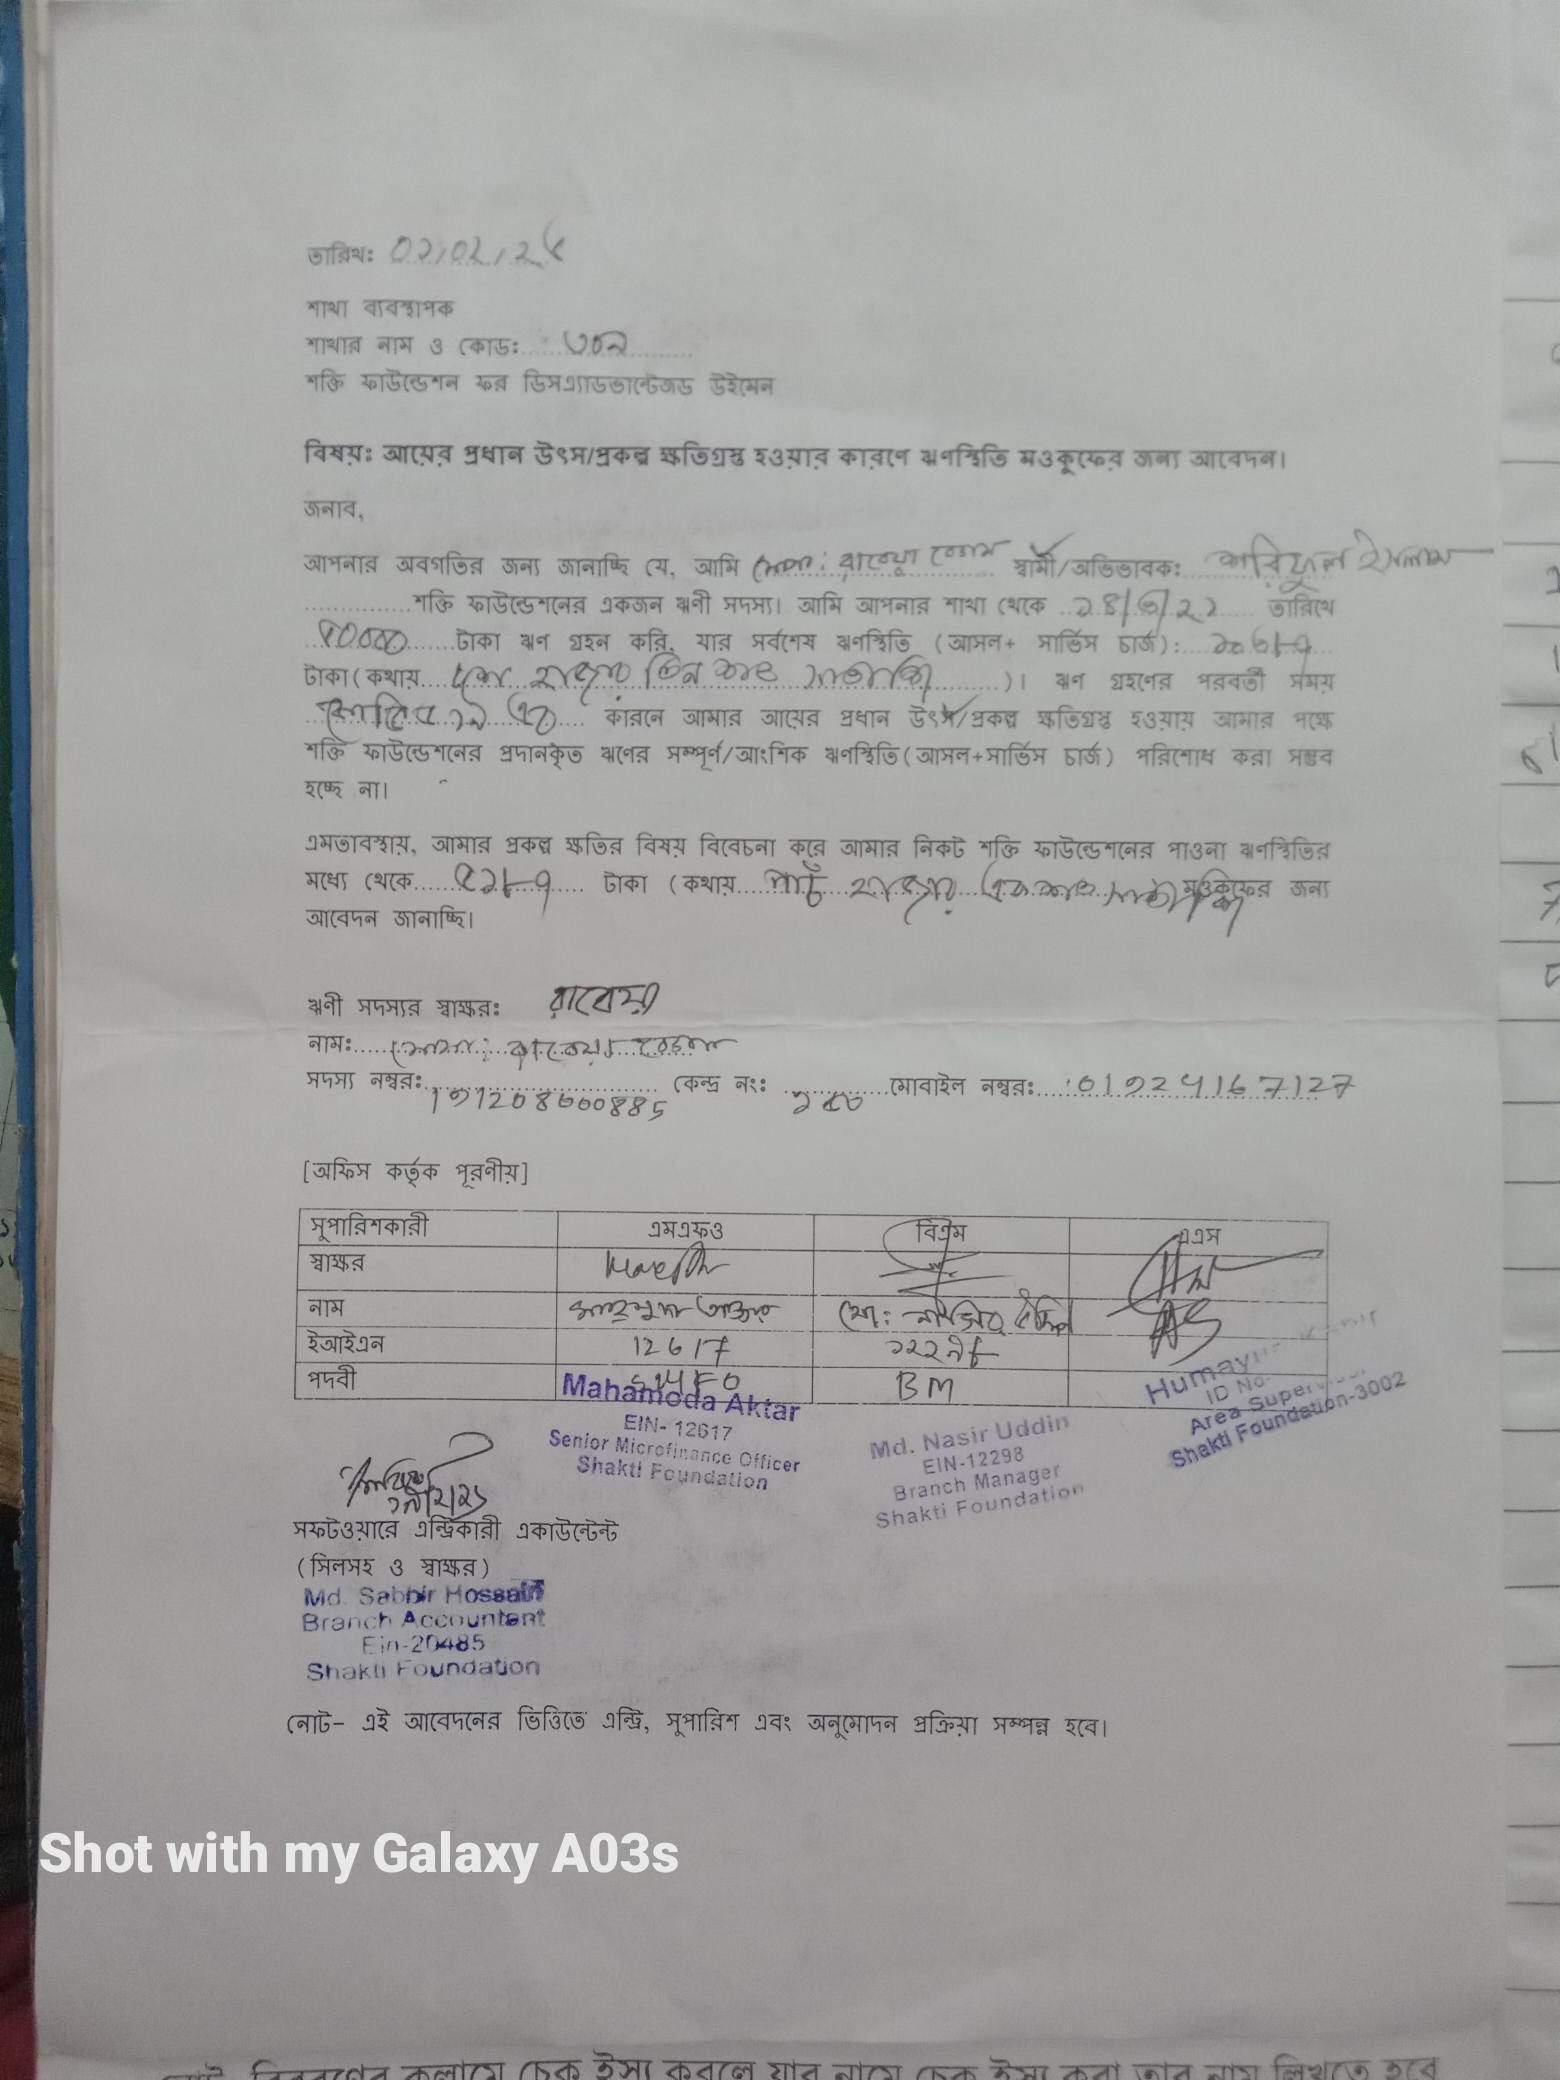 তারিখঃ ০২/০২/২৫
শাখা ব্যবস্থাপক
শাখার নাম ও কোডঃ ৩০৯
শক্তি ফাউন্ডেশন ফর ডিসএ্যাডভান্টেজড উইমেন
বিষয়ঃ আয়ের প্রধান উৎস/প্রকল্প ক্ষতিগ্রস্ত হওয়ার কারণে ঋণস্থিতি মওকুফের জন্য আবেদন।
জনাব,
আপনার অবগতির জন্য জানাচ্ছি যে, আমি মোসা: রাবেয়া বেগম স্বামী/অভিভাবক: শরিফুল ইসলাম
শক্তি ফাউন্ডেশনের একজন ঋণী সদস্য। আমি আপনার শাখা থেকে তারিখে
টাকা ঋণ গ্রহন করি, যার সর্বশেষ ঋণস্থিতি (আসল+ সার্ভিস চার্জ):
টাকা(কথায় হাজার তিন শত সাতাশি )। ঋণ গ্রহণের পরবর্তী সময়
কারনে আমার আয়ের প্রধান উৎস/প্রকল্প ক্ষতিগ্রস্ত হওয়ায় আমার পক্ষে
শক্তি ফাউন্ডেশনের প্রদানকৃত ঋণের সম্পূর্ণ/আংশিক ঋণস্থিতি(আসল+সার্ভিস চার্জ) পরিশোধ করা সম্ভব
হচ্ছে না।
এমতাবস্থায়, আমার প্রকল্প ক্ষতির বিষয় বিবেচনা করে আমার নিকট শক্তি ফাউন্ডেশনের পাওনা ঋণস্থিতির
মধ্যে থেকে ৫১৮৭ টাকা (কথায় পাঁচ হাজার এক শত সাতাশি মওকুফের জন্য
আবেদন জানাচ্ছি।
ঋণী সদস্যর স্বাক্ষরঃ রাবেয়া
নামঃ মোসা: রাবেয়া বেগম
সদস্য নম্বরঃ কেন্দ্র নংঃ মোবাইল নম্বরঃ
[অফিস কর্তৃক পূরণীয়]
সুপারিশকারী এমএফও বিএম এএস
স্বাক্ষর
নাম মাহমুদা আক্তার মো: নাসির উদ্দিন
ইআইএন 12617 ১২২৯৮
পদবী SMFO BM
Mahamoda Aktar
EIN- 12617
Senior Microfinance Officer
Shakti Foundation
Md. Nasir Uddin
EIN-12298
Branch Manager
Shakti Foundation
ID No-
Area Supervisor
Shakti Foundation-3002
সফটওয়ারে এন্ট্রিকারী একাউন্টেন্ট
(সিলসহ ও স্বাক্ষর)
Md. Sabbir Hossain
Branch Accountant
Ein-20485
Shakti Foundation
(নোট- এই আবেদনের ভিত্তিতে এন্ট্রি, সুপারিশ এবং অনুমোদন প্রক্রিয়া সম্পন্ন হবে।
Shot with my Galaxy A03s
বিবরণের কলামে চেক ইস্যু করলে যার নামে চেক ইস্যু করা তার নাম লিখতে হবে